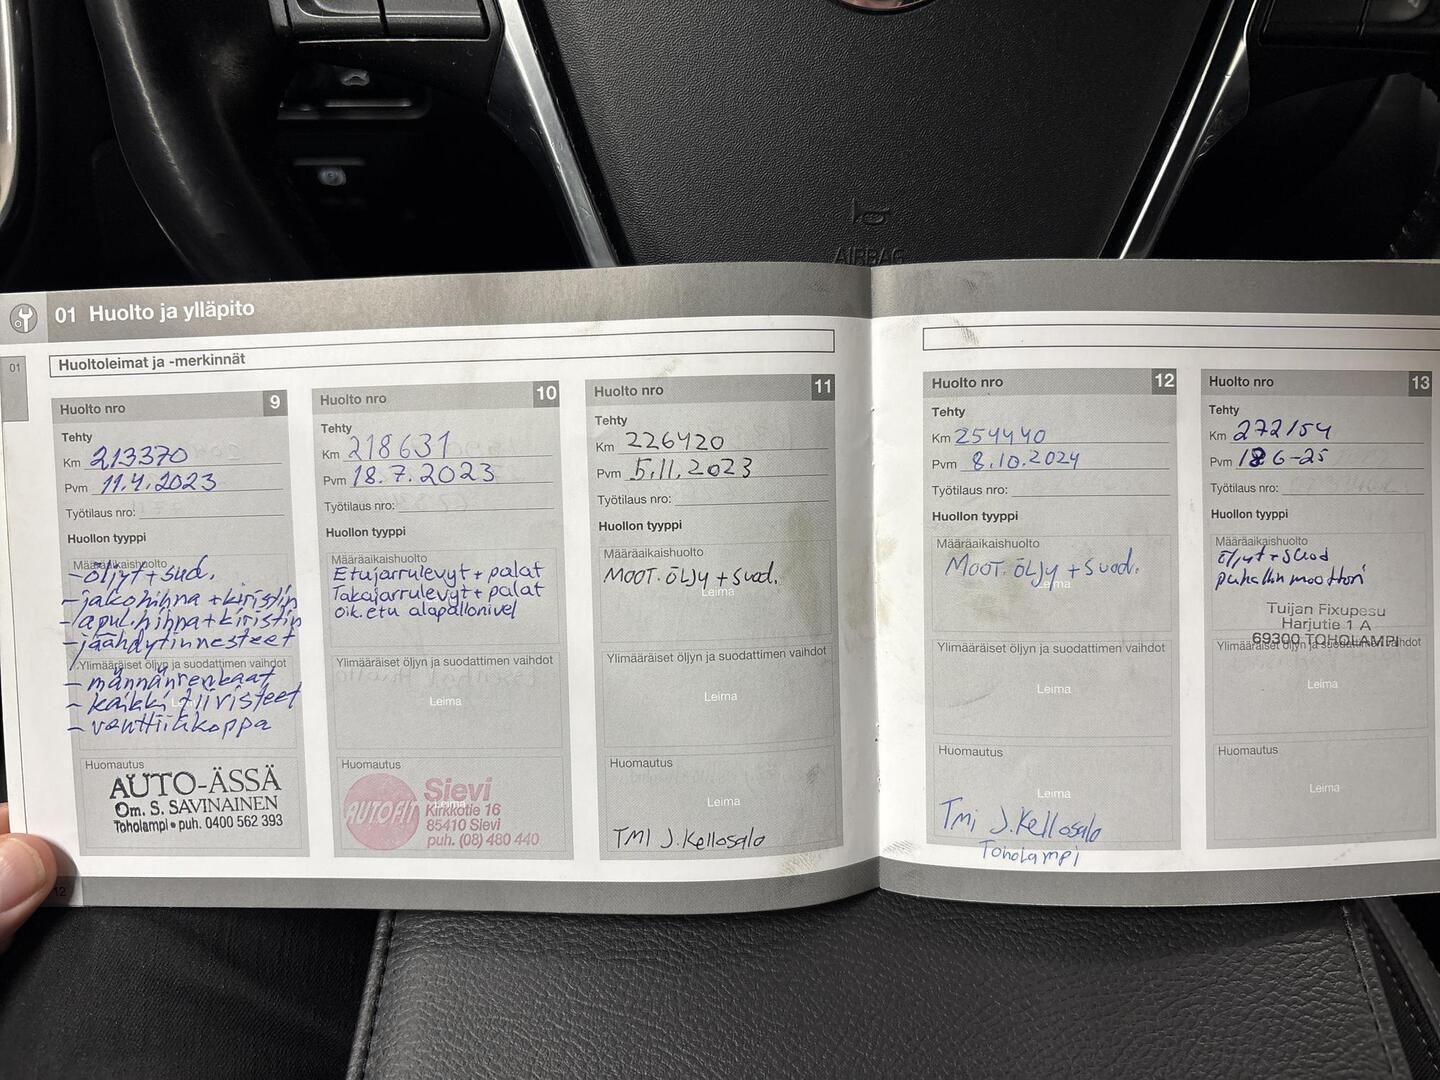 AIRBAG
01 Huolto ja ylläpito
01
Huoltoleimat ja -merkinnät
Huolto nro 9
Tehty
Km 213370
Pvm 11.4.2023
Työtilaus nro:
Huollon tyyppi
Määräaikaishuolto
- öljyt + sud.
- jakohihna + kiristin
- apul.hihna + kiristin
- jäähdytinnesteet
Ylimääräiset öljyn ja suodattimen vaihdot
- männänrenkaat
- kaikki tiivisteet
- venttiilikoppa
Huomautus
AUTO-ÄSSÄ
Om. S. SAVINAINEN
Toholampi • puh. 0400 562 393
12
Huolto nro 10
Tehty
Km 218631
Pvm 18.7.2023
Työtilaus nro:
Huollon tyyppi
Määräaikaishuolto
Etujarrulevyt + palat
Takajarrulevyt + palat
oik. etu alapallonivel
Ylimääräiset öljyn ja suodattimen vaihdot
Leima
Huomautus
Leima
AUTOFIT Sievi
Kirkkotie 16
85410 Sievi
puh. (08) 480 440
Huolto nro 11
Tehty
Km 226420
Pvm 5.11.2023
Työtilaus nro:
Huollon tyyppi
Määräaikaishuolto
MOOT. ÖLJY + Suod.
Leima
Ylimääräiset öljyn ja suodattimen vaihdot
Leima
Huomautus
Leima
TMI J. Kellosalo
Huolto nro 12
Tehty
Km 254440
Pvm 8.10.2024
Työtilaus nro:
Huollon tyyppi
Määräaikaishuolto
MOOT. ÖLJY + Suod.
Leima
Ylimääräiset öljyn ja suodattimen vaihdot
Leima
Huomautus
Leima
Tmi J. Kellosalo
Toholampi
Huolto nro 13
Tehty
Km 272154
Pvm 6-25
Työtilaus nro:
Huollon tyyppi
Määräaikaishuolto
öljyt + suod
puhallin moottori
Tuijan Fixupesu
Harjutie 1 A
69300 TOHOLAMPI
Ylimääräiset öljyn ja suodattimen vaihdot
Leima
Huomautus
Leima